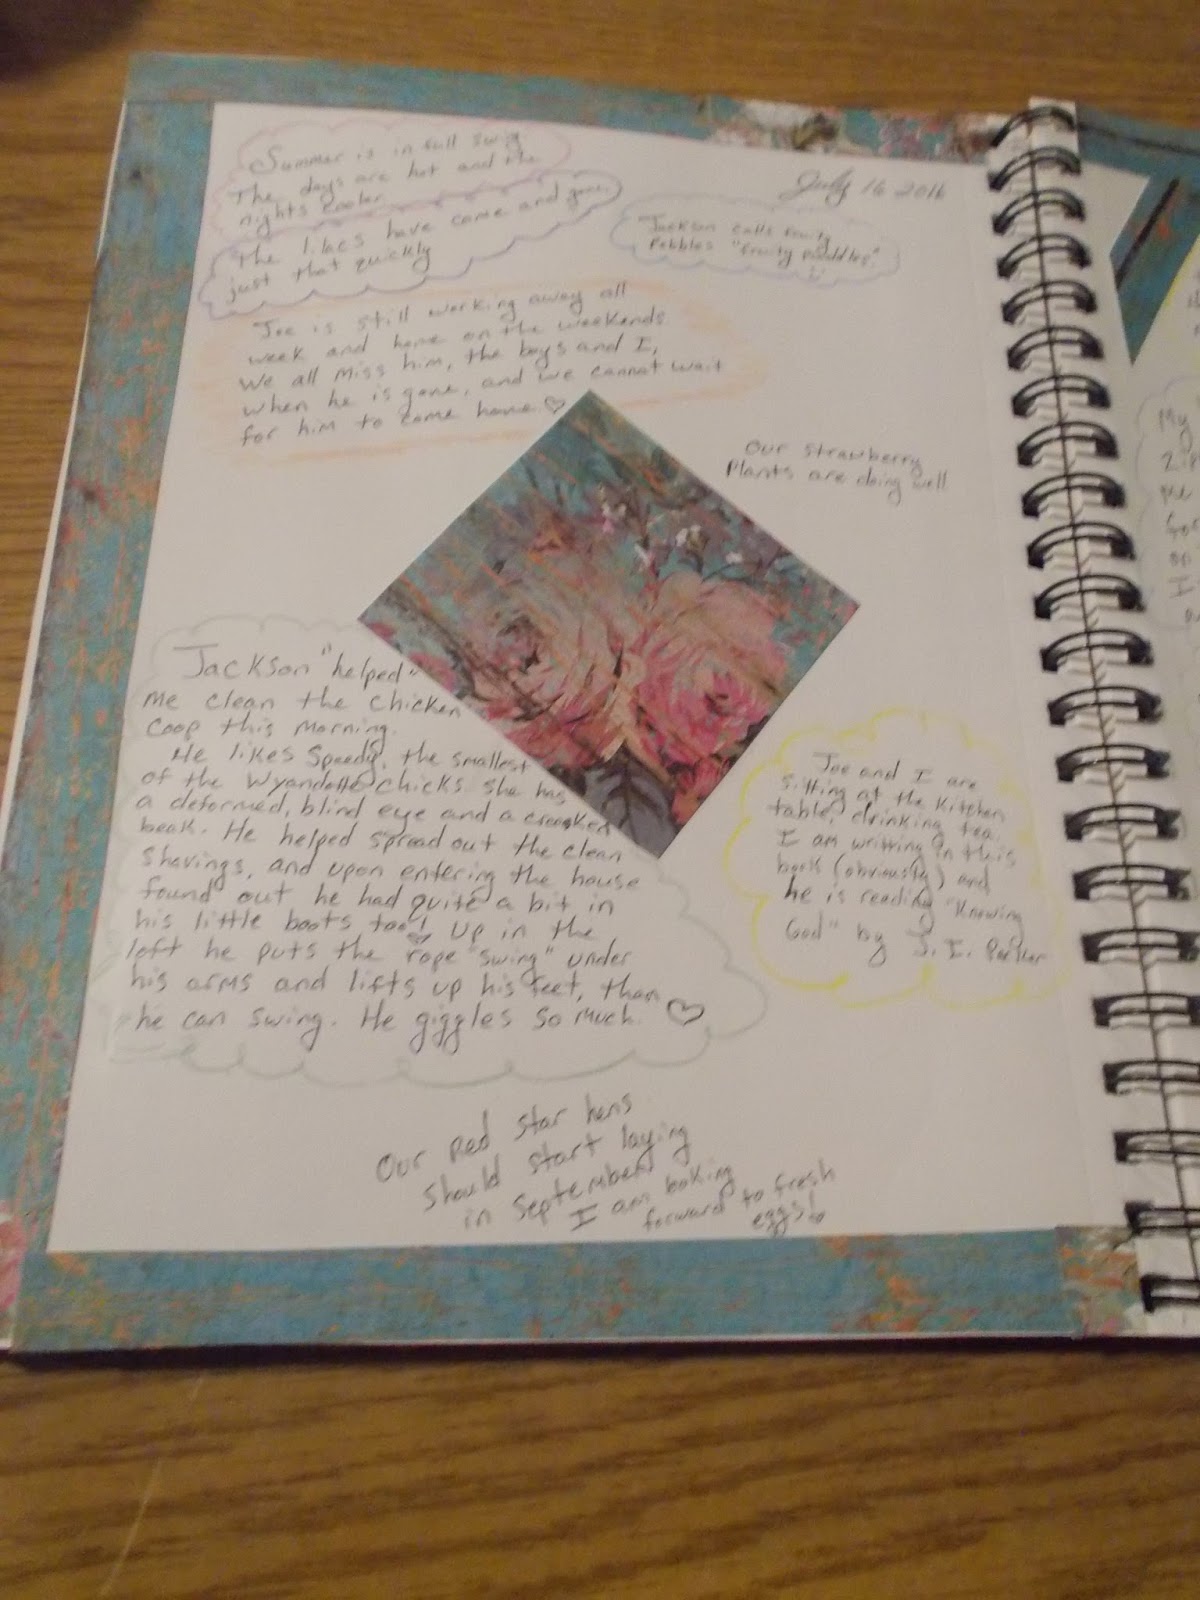 July 16 2016
Summer is in full swing
The days are hot and the
nights cooler
The lilacs have come and gone
just that quickly
Jackson calls fruity
Pebbles "fruity puddles".
Joe is still working away all
week and home on the weekends
We all miss him, the boys and I,
when he is gone, and we cannot wait
for him to come home. ♡
Our strawberry
Plants are doing well
Jackson "helped"
me clean the chicken
coop this morning.
He likes Speedy, the smallest
of the Wyandotte chicks. She has
a deformed, blind eye and a crooked
beak. He helped spread out the clean
shavings, and upon entering the house
found out he had quite a bit in
his little boots too! Up in the
loft he puts the rope "swing" under
his arms and lifts up his feet, than
he can swing. He giggles so much. ♡
Joe and I are
sitting at the kitchen
table, drinking tea.
I am writting in this
book (obviously) and
he is reading "Knowing
God" by J. I. Packer
Our Red Star hens
should start laying
in September
I am looking
forward to fresh
eggs!
My